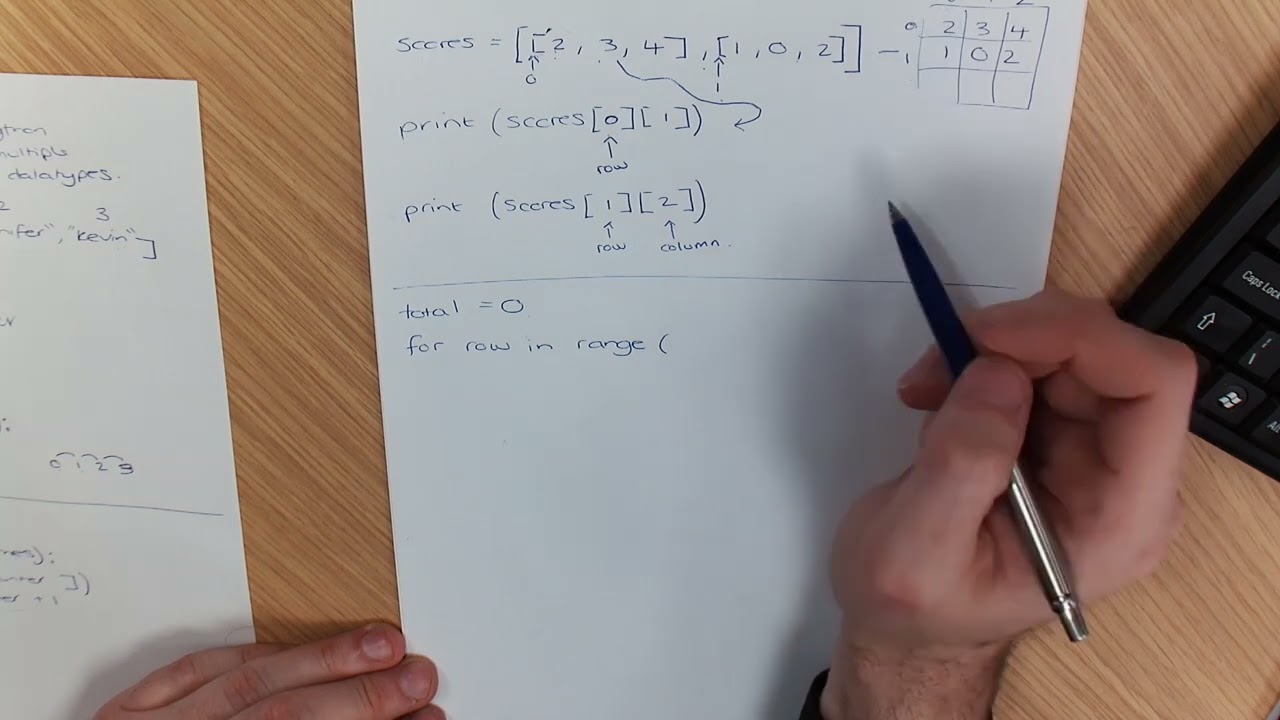 scores = [[2, 3, 4], [1, 0, 2]]
0 1
0 2 3 4
1 1 0 2
print (scores[0][1])
row
print (scores[1][2])
row column.
total = 0
for row in range (
multiple
datatypes.
2 3
"kevin"]
0 1 2 3
):
])
+1
Caps Loc